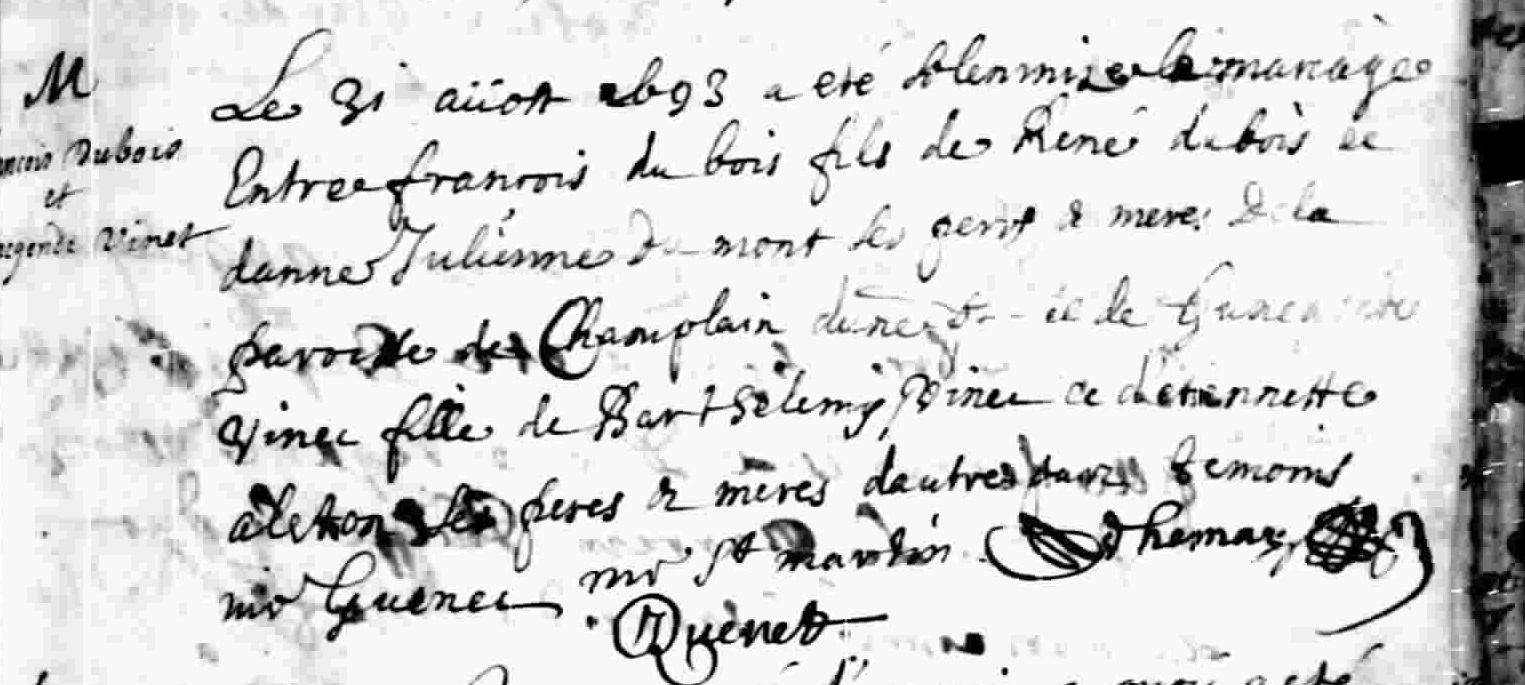 M
ancois Dubois
et
regende Vinet
Le 31 aüost 1693 a eté solemnize le mariage
Entre francois du bois fils de René dubois et
danne Julienne du mont ses pere & mere De la
paroisse de Champlain dune part et de
Vinet fille de Barthelemy Vinet et detiennette
aleton Ses peres & meres dautre part temoins
mr Guenet mr St martin Adhemar
Quenet